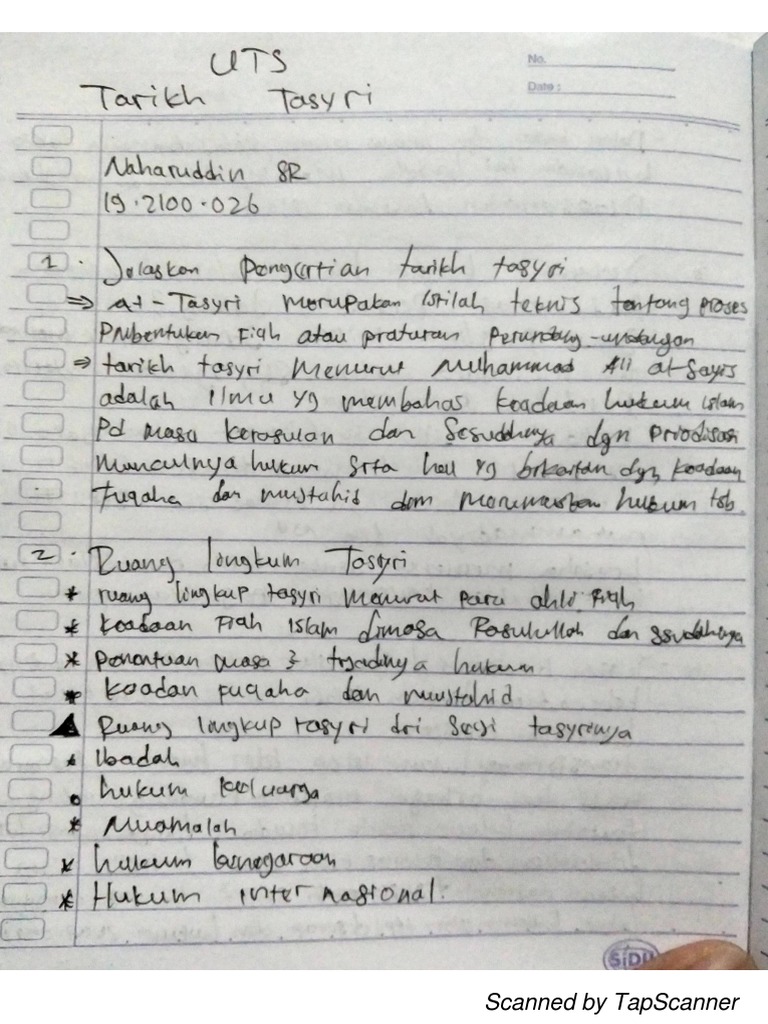 UTS
No.
Date :
Tarikh Tasyri
Naharuddin SR
19.2100.026
1. Jelaskan Pengertian tarikh tasyri
⇒ at-Tasyri merupakan istilah teknis tentang proses
Pmbentukan Fiqh atau praturan Perundang-undangan
⇒ tarikh tasyri menurut Muhammad Ali at-Sayis
adalah Ilmu yg membahas keadaan hukum islam
Pd masa kerasulan dan Sesuddhnya dgn Priodisasi
Munculnya hukum Srta hal yg brkaitan dgn keadaan
Fuqaha dan mustahid dlm merumuskan hukum tsb.
2. Ruang lingkum Tasyri
* ruang lingkup tasyri menurut para ahli Fiqh
* keadaan Fiqh Islam dimasa Rasulullah dan ssudahnya
* penentuan masa 2 trjadinya hukum
* keadan fuqaha dan mustahid
▲ Ruang lingkup tasyri dri Segi tasyrinya
* Ibadah
• hukum keluarga
* Muamalah
* hukum kenegaraan
* Hukum internasional.
SiDU
Scanned by TapScanner